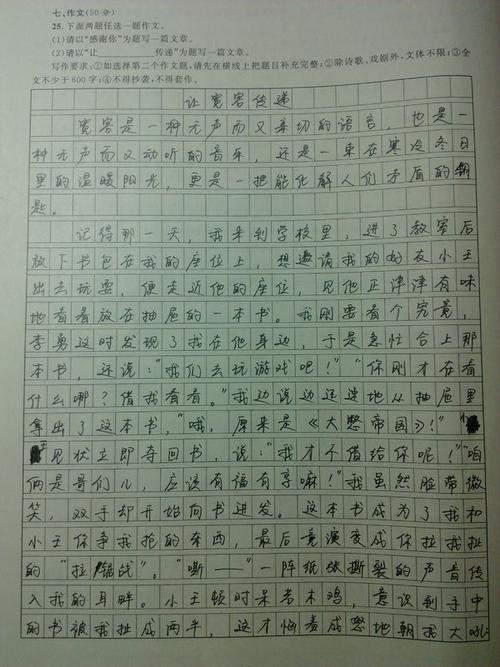 七、作文(50分)
25.下面两题任选一题作文。
(1)请以“感谢你”为题写一篇文章。
(2)请以“让 传递”为题写一篇文章。
写作要求:①如选择第二个作文题,请先在横线上把题目补充完整;②除诗歌、戏剧外,文体不限;③全
文不少于600字;④不得抄袭,不得套作。
让宽容传递
宽容是一种无声而又亲切的语言,也是一
种无声而又动听的音乐,还是一束在寒冷冬日
里的温暖阳光,更是一把能化解人们矛盾的钥
匙。
记得那一天,我来到学校里,进了教室后
放下书包在我的座位上,想邀请我的好友小王
出去玩耍,便走近他的座位,见他正津津有味
地看着放在抽屉的一本书。我刚要看个究竟,
李勇这时发现了我在他身边,于是急忙合上那
本书,还说:“我们去玩游戏吧!”“你刚才在看
什么哪?借我看看。”我边说边迅速地从抽屉里
拿出了这本书,“哦,原来是《大憋帝国》!”小
王见状立即夺回书,说:“我才不借给你呢!”“咱
俩是哥们儿,应该有福有享嘛!”我虽然脸带微
笑,双手却开始向书进发。这本书成为了我和
小王你争我抢的东西,最后竟演变成你拉我扯
的“拉锯战”。“嘶——”一阵纸张撕裂的声音传
入我的耳畔。小王顿时呆若木鸡,意识到手中
的书被我扯成两半,这才恼羞成怒地朝我大吼